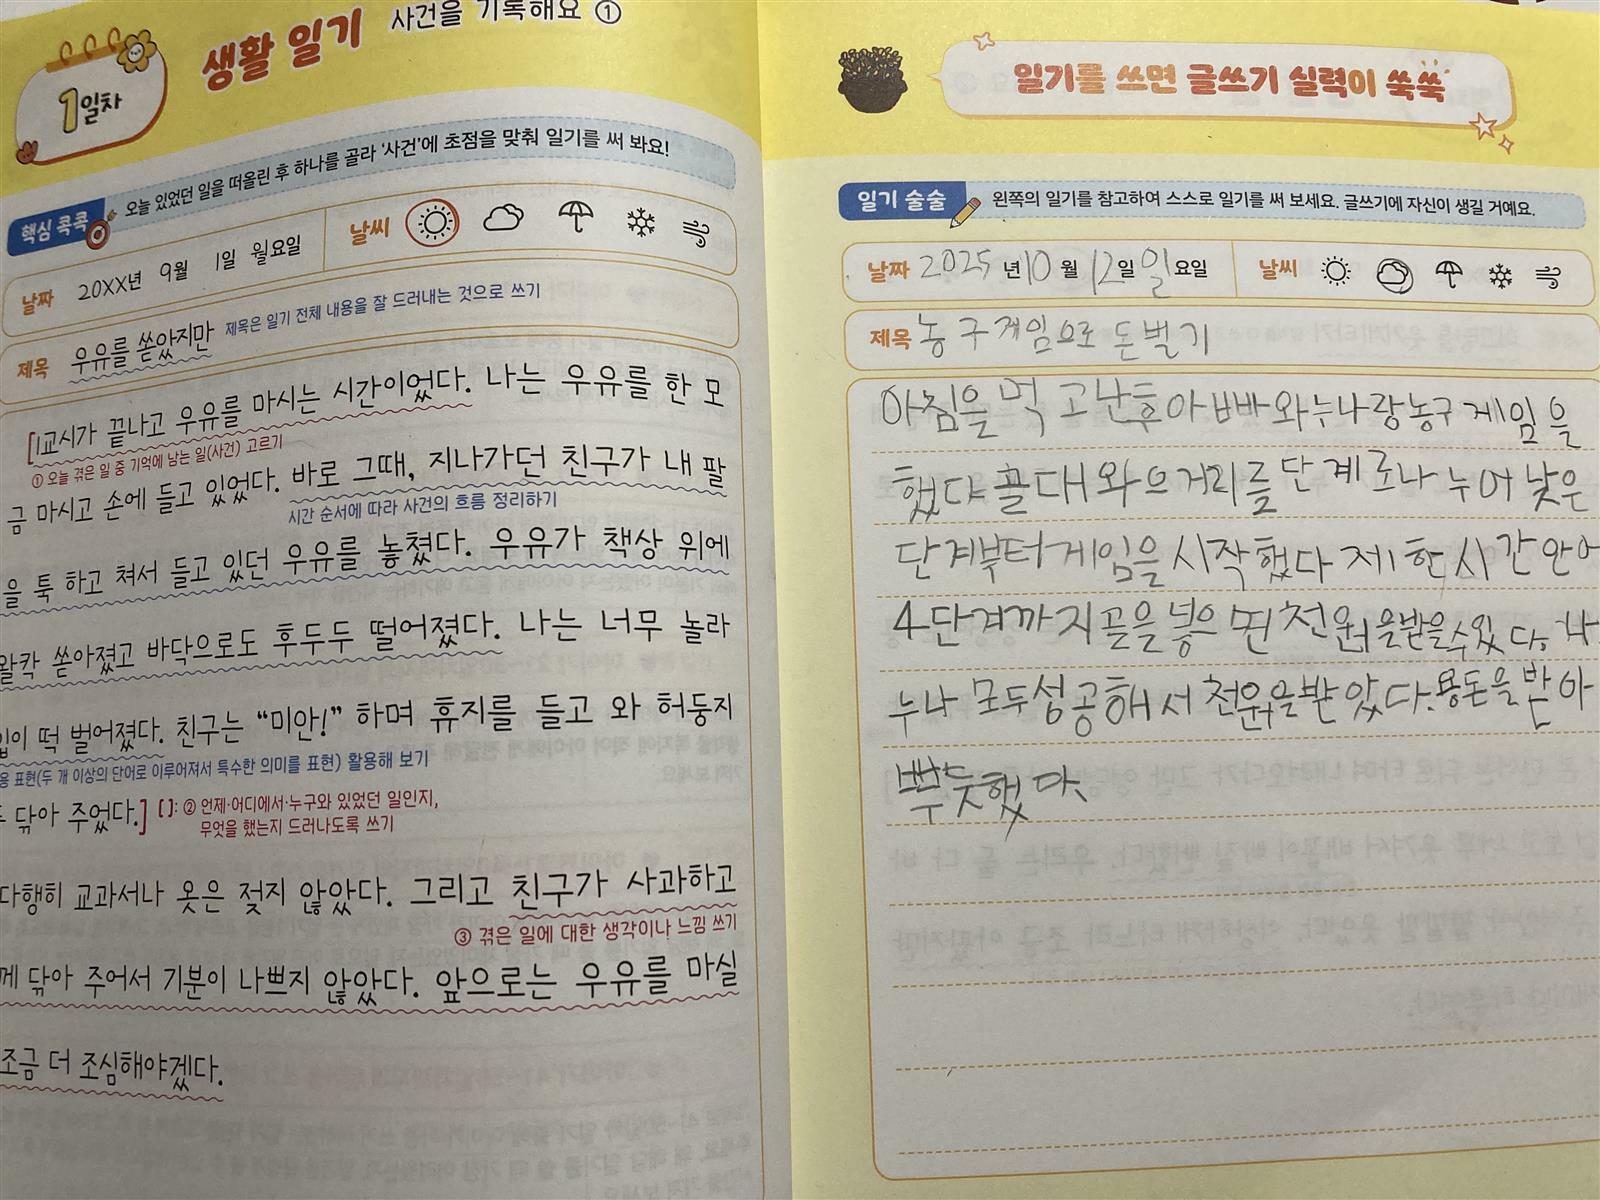 1일차
생활 일기 사건을 기록해요 ①
핵심 콕콕 오늘 있었던 일을 떠올린 후 하나를 골라 '사건'에 초점을 맞춰 일기를 써 봐요!
날짜 20XX년 9월 1일 월요일 날씨
제목 우유를 쏟았지만 제목은 일기 전체 내용을 잘 드러내는 것으로 쓰기
[1교시가 끝나고 우유를 마시는 시간이었다. 나는 우유를 한 모
① 오늘 겪은 일 중 기억에 남는 일(사건) 고르기
금 마시고 손에 들고 있었다. 바로 그때, 지나가던 친구가 내 팔
시간 순서에 따라 사건의 흐름 정리하기
을 툭 하고 쳐서 들고 있던 우유를 놓쳤다. 우유가 책상 위에
왈칵 쏟아졌고 바닥으로도 후두두 떨어졌다. 나는 너무 놀라
입이 떡 벌어졌다. 친구는 "미안!" 하며 휴지를 들고 와 허둥지
용 표현(두 개 이상의 단어로 이루어져서 특수한 의미를 표현) 활용해 보기
닦아 주었다.] [ ]: ② 언제·어디에서·누구와 있었던 일인지,
무엇을 했는지 드러나도록 쓰기
다행히 교과서나 옷은 젖지 않았다. 그리고 친구가 사과하고
③ 겪은 일에 대한 생각이나 느낌 쓰기
께 닦아 주어서 기분이 나쁘지 않았다. 앞으로는 우유를 마실
조금 더 조심해야겠다.
일기를 쓰면 글쓰기 실력이 쑥쑥
일기 술술 왼쪽의 일기를 참고하여 스스로 일기를 써 보세요. 글쓰기에 자신이 생길 거예요.
날짜 2025년 10월 12일 일요일 날씨
제목 농구게임으로 돈벌기
아침을 먹고난후아빠와누나랑농구게임을
했다 골대와으거리를단계로나누어낮은
단계부터게임을시작했다 제1한시간안에
4단계까지골을넣으면천원을받을수있다. 나
누나모두성공해서천원을받았다.용돈을받아
뿌듯했다.